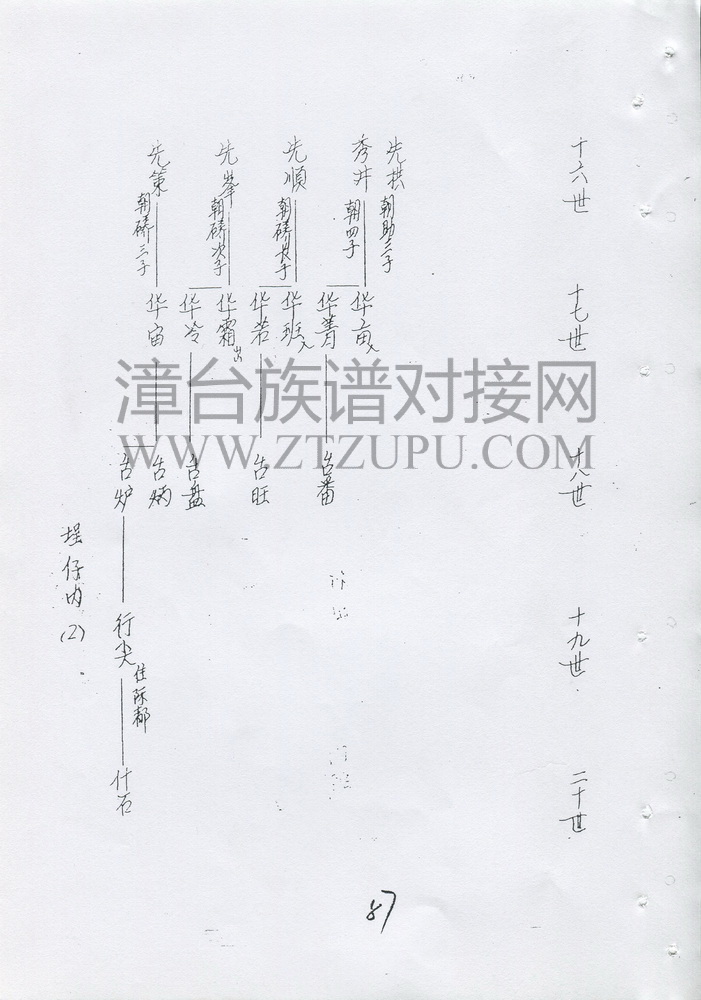 十六世
十七世
十八世
十九世
二十世
先拱
朝助三子
秀井
朝四子
先順
朝磷长子
先峯
朝磷次子
先策
朝磷三子
华亩
华菁
华班
华若
华霜
出
华冷
华宙
古番
古旺
古盘
古炳
古炉
行尖
住际都
什石
埕仔内
(2)
漳台族谱对接网
WWW.ZTZUPU.COM
87